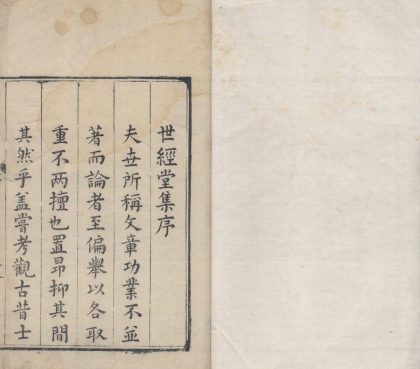 世經堂集序
夫世所稱文章功業不並
著而論者至偏舉以各取
重不两擅也置昻抑其間
其然乎盖嘗考觀古昔士